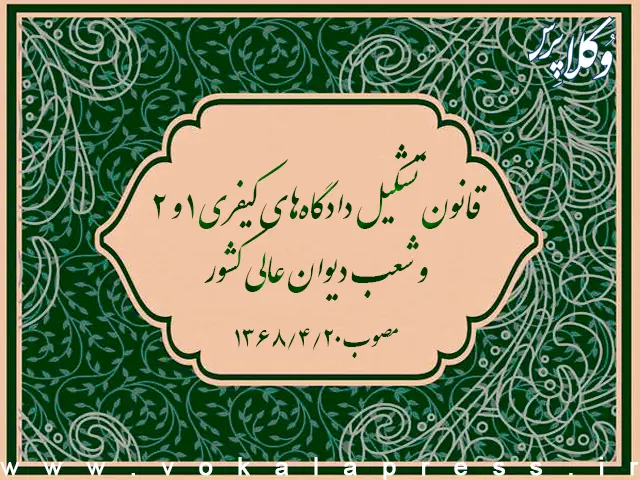 وکلاپرس
قانون تشکیل دادگاه‌های کیفری ۱ و ۲
و شعب دیوان عالی کشور
مصوب ۱۳۶۸/۴/۲۰
www.vokalapress.ir